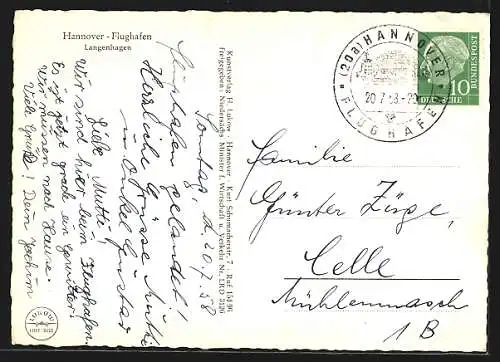 Hannover - Flughafen
Langenhagen
Liebe Mutti!
Wir sind hier beim Flughafen.
Es ist jetzt grade ein Gewitter!
Wir müssen nach Hause.
Viele Grüße! Dein Jochim
Sonntag, d. 20.7.58
Flughafen gelandet!
Herzliche Grüsse Mutti
u. Onkel Gustav
Kunstverlag H. Lukow, Hannover, Kurt Schumacherstr. 7 - Ruf
freigegeben: Niedersächs. Minister f. Wirtschaft u. Verkehr Nr. LRD
(20a) HANNOVER
20.7.58-20
FLUGHAFEN
10
DEUTSCHE
BUNDESPOST
Familie
Günter
Celle
Mühlenmasch
1 B